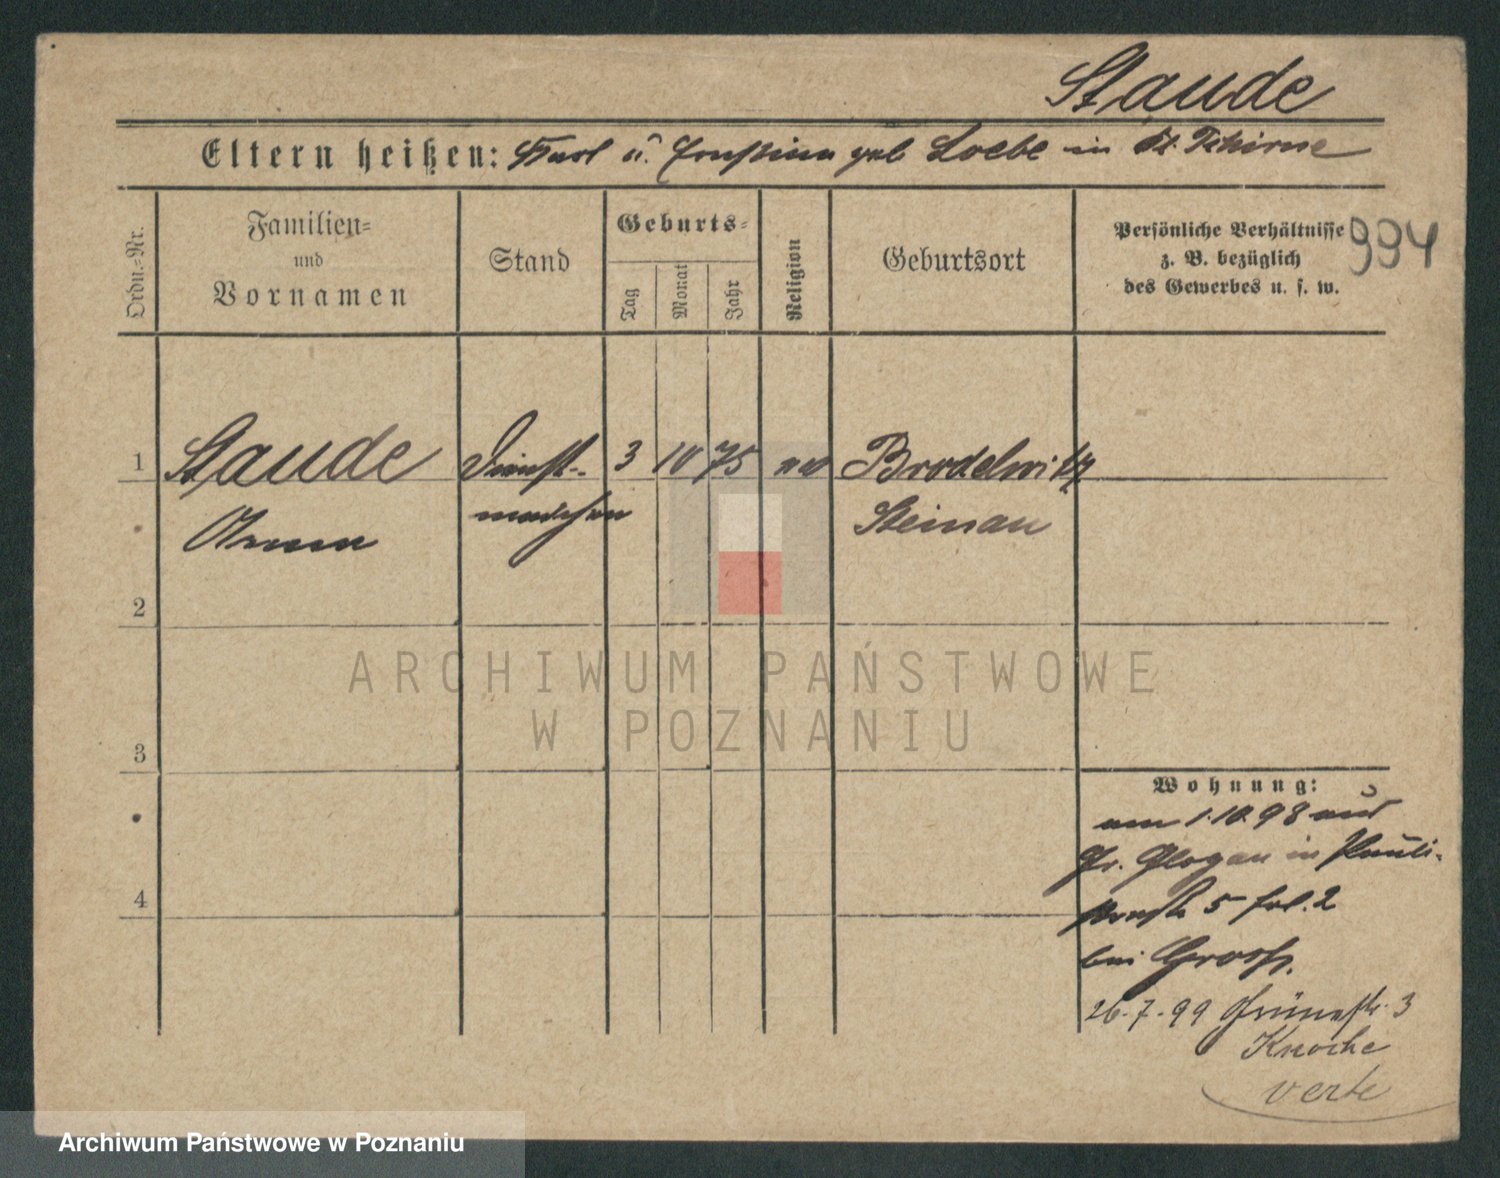 Staude
Eltern heißen: Karl u. Ernstina geb Loebe in Kl. Tschirne
Ordn.-Nr.
Familien-
und
Vornamen
Stand
Geburts-
Tag
Monat
Jahr
Religion
Geburtsort
Persönliche Verhältnisse
z. B. bezüglich
des Gewerbes u. s. w.
994
1 Staude Dienst- 3 10 75 ev Brodelwitz
mädchen Steinau
Anna
2
3
4
Wohnung:
am 1.10.98 aus
Gr. Glogau in Pauli-
kirchstr 5 bei
bei Gross.
26.7.99 Grünestr. 3
Knoche
verte
ARCHIWUM PAŃSTWOWE
W POZNANIU
Archiwum Państwowe w Poznaniu